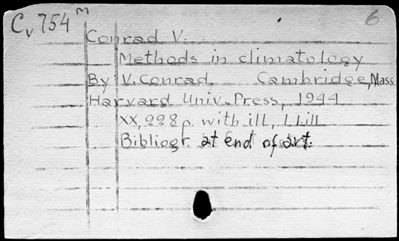 Cv 754 m 6
Conrad V.
Methods in climatology
By V. Conrad. Cambridge, Mass
Harvard Univ. Press, 1944
XX, 228 p. with ill, 1 l ill
Bibliogr at end of art.